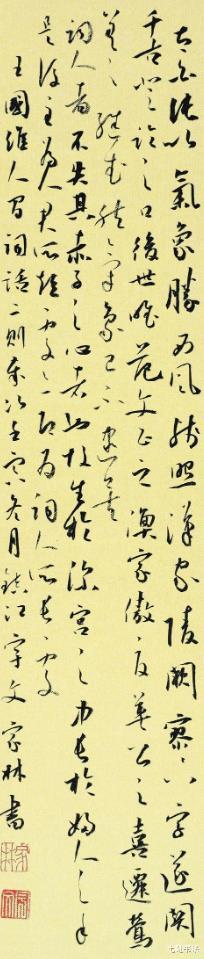 太白純以氣象勝西風殘照漢家陵闕寥八字遂關
千古登臨之口後世唯范文正之漁家傲夏英公之喜遷鶯
差足繼武然氣象已不逮矣
詞人者不失其赤子之心者也故生於深宮之中長於婦人之手
是後主為人君所短處亦即為詞人所長處
王國維人間詞話二則歲次壬寅冬月鎮江宇文家林書